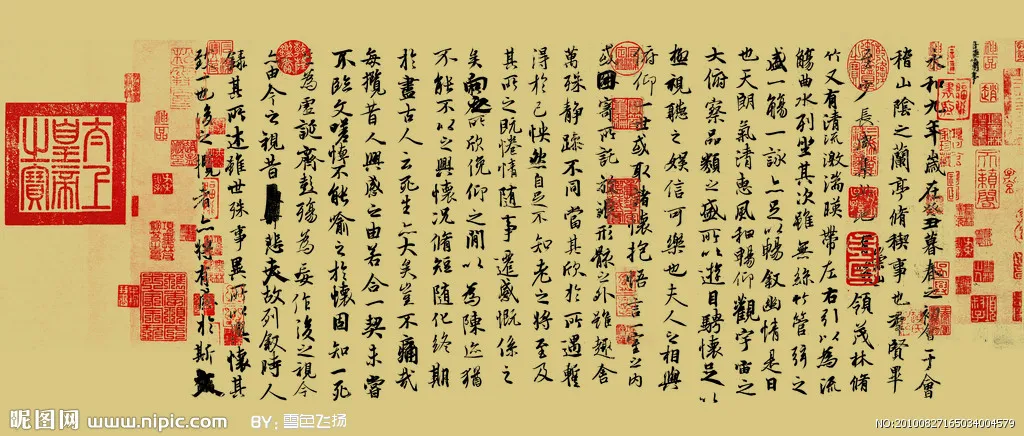 永和九年歲在癸丑暮春之初會于會
稽山陰之蘭亭脩稧事也群賢畢
少長咸集此地領茂林脩
竹又有清流激湍暎帶左右引以為流
觴曲水列坐其次雖無絲竹管弦之
盛一觴一詠亦足以暢敘幽情是日
也天朗氣清惠風和暢仰觀宇宙之
大俯察品類之盛所以遊目騁懷足以
極視聽之娛信可樂也夫人之相與
俯仰一世或取諸懷抱悟言一室之內
或因寄所託放浪形骸之外雖趣舍
萬殊靜躁不同當其欣於所遇暫
得於己怏然自足不知老之將至及
其所之既惓情隨事遷感慨係之
矣向之所欣俛仰之間以為陳迹猶
不能不以之興懷況脩短隨化終期
於盡古人云死生亦大矣豈不痛哉
每攬昔人興感之由若合一契未嘗
不臨文嗟悼不能喻之於懷固知一死
生為虛誕齊彭殤為妄作後之視今
亦由今之視昔悲夫故列敘時人
錄其所述雖世殊事異所以興懷其
致一也後之攬者亦將有感於斯文
太上皇帝之寶
昵图网 www.nipic.com BY: 雪色飞扬
NO:20100827165034004579